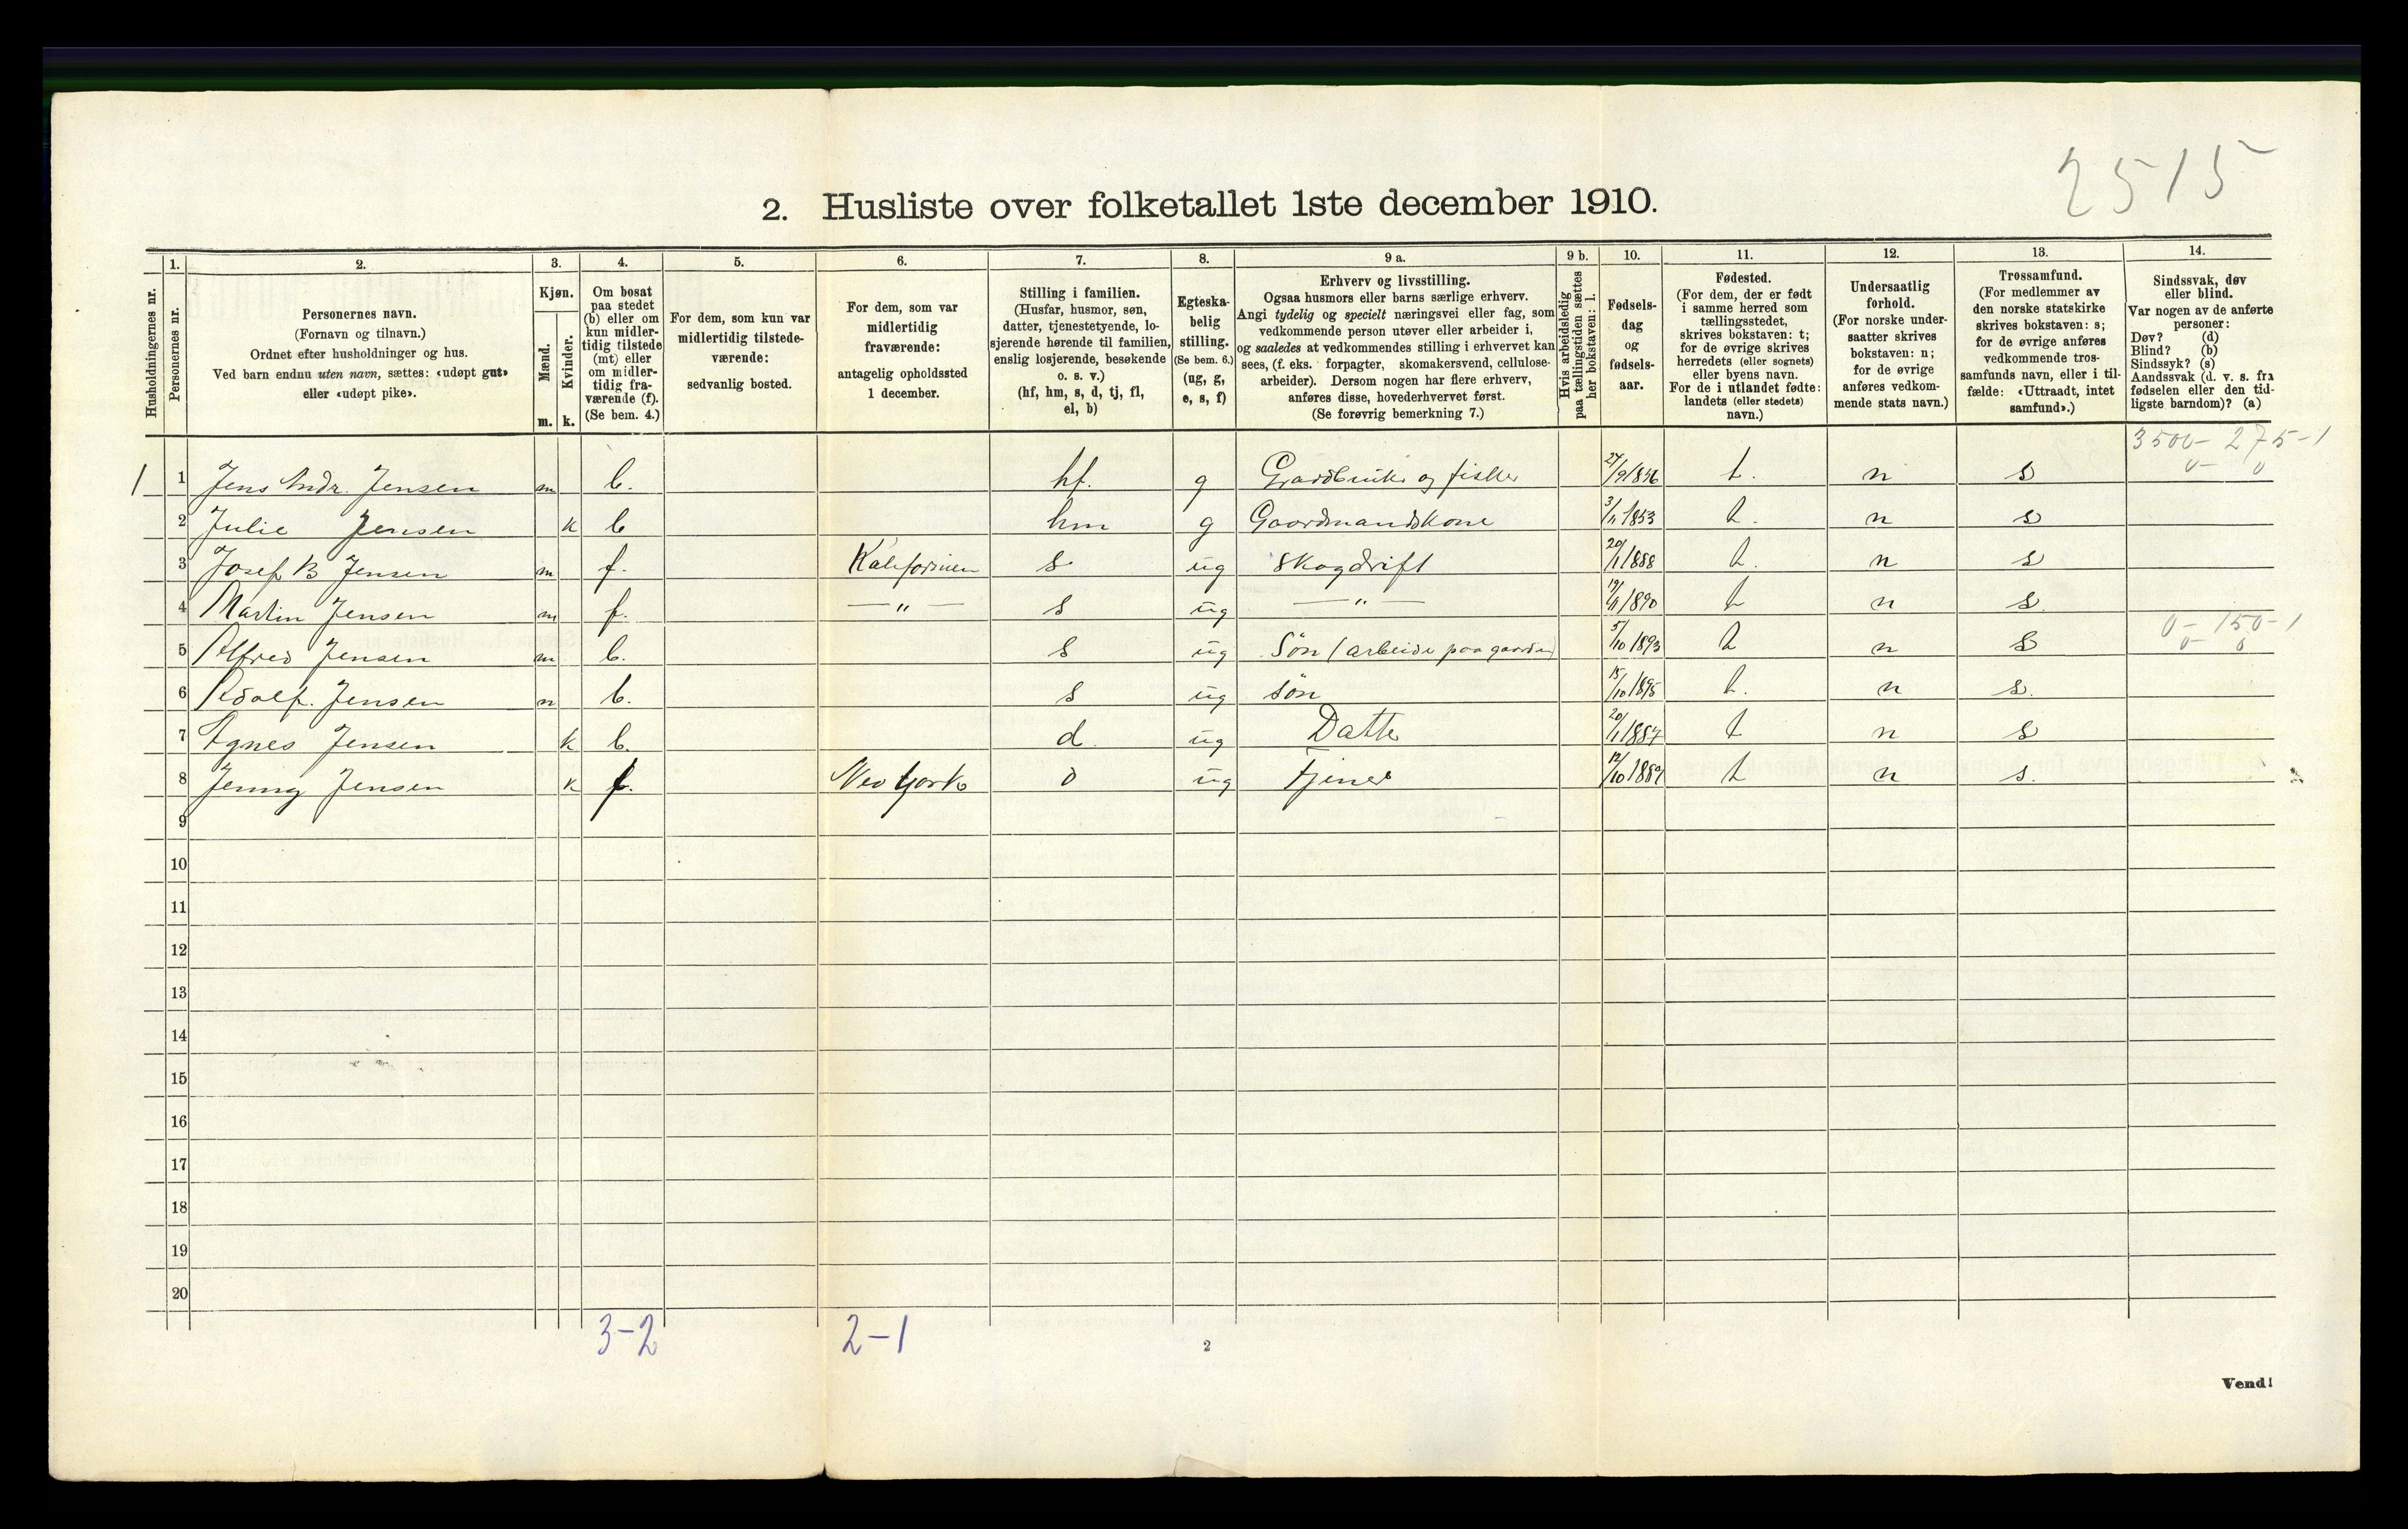 2515
2. Husliste over folketallet 1ste december 1910.
Husholdningernes nr.
1. Personernes nr.
2. Personernes navn.
(Fornavn og tilnavn.)
Ordnet efter husholdninger og hus.
Ved barn endnu uten navn, sættes: «udøpt gut»
eller «udøpt pike».
3. Kjøn.
Mænd. Kvinder.
m. k.
4. Om bosat
paa stedet
(b) eller om
kun midler-
tidig tilstede
(mt) eller
om midler-
tidig fra-
værende (f).
(Se bem. 4.)
5. For dem, som kun var
midlertidig tilstede-
værende:
sedvanlig bosted.
6. For dem, som var
midlertidig
fraværende:
antagelig opholdssted
1 december.
7. Stilling i familien.
(Husfar, husmor, søn,
datter, tjenestetyende, lo-
sjerende hørende til familien,
enslig losjerende, besøkende
o. s. v.)
(hf, hm, s, d, tj, fl,
el, b)
8. Egteska-
belig
stilling.
(Se bem. 6.)
(ug, g,
e, s, f)
9 a. Erhverv og livsstilling.
Ogsaa husmors eller barns særlige erhverv.
Angi tydelig og specielt næringsvei eller fag, som
vedkommende person utøver eller arbeider i,
og saaledes at vedkommendes stilling i erhvervet kan
sees, (f. eks. forpagter, skomakersvend, cellulose-
arbeider). Dersom nogen har flere erhverv,
anføres disse, hovederhvervet først.
(Se forøvrig bemerkning 7.)
9 b. Hvis arbeidsledig
paa tællingstiden sættes
her bokstaven: l.
10. Fødsels-
dag
og
fødsels-
aar.
11. Fødested.
(For dem, der er født
i samme herred som
tællingsstedet,
skrives bokstaven: t;
for de øvrige skrives
herredets (eller sognets)
eller byens navn.
For de i utlandet fødte:
landets (eller stedets)
navn.)
12. Undersaatlig
forhold.
(For norske under-
saatter skrives
bokstaven: n;
for de øvrige
anføres vedkom-
mende stats navn.)
13. Trossamfund.
(For medlemmer av
den norske statskirke
skrives bokstaven: s;
for de øvrige anføres
vedkommende tros-
samfunds navn, eller i til-
fælde: «Uttraadt, intet
samfund».)
14. Sindssvak, døv
eller blind.
Var nogen av de anførte
personer:
Døv? (d)
Blind? (b)
Sindssyk? (s)
Aandssvak (d. v. s. fra
fødselen eller den tid-
ligste barndom)? (a)
3500- 275-1
1 1 Jens Andr. Jensen m b. hf. g Gaardbruker og fisker 27/9 1856 t. n s 0- 0
2 Julie Jensen k b hm g Gaardmandskone 3/11 1853 t. n s
3 Josef B Jensen m f. Kalifornien s ug skogdrift 20/1 1888 t. n s
4 Martin Jensen m f. —"— s ug —"— 1890 t n s
0- 150-1
5 Alfred Jensen m b. s ug Søn (arbeide paa gaarden) 5/10 1893 t n s 0- 0
6 Adolf. Jensen m b. s ug søn 15/10 1895 t. n s.
7 Agnes Jensen k b. d. ug Datter 20/1 1887 t n s
8 Jenny Jensen k f. New York d ug tjener 12/10 1889 t n s.
9
10
11
12
13
14
15
16
17
18
19
20
3-2 2-1
2
Vend!